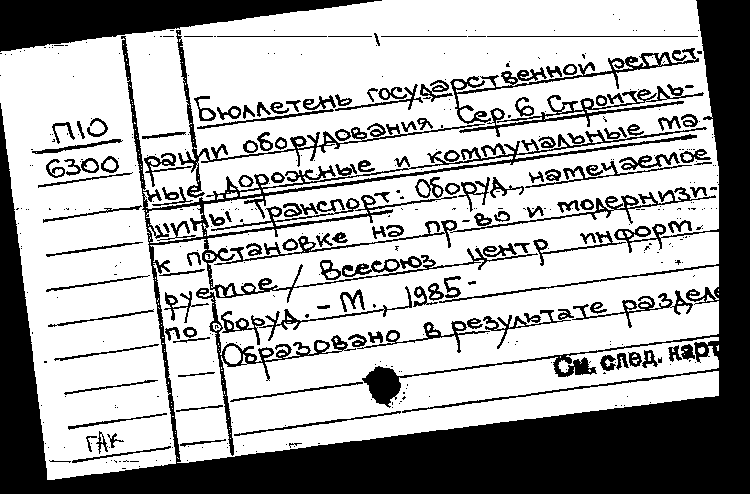 П10
6300
Бюллетень государственной регист-
рации оборудования. Сер. 6, Строитель-
ные, дорожные и коммунальные ма-
шины. Транспорт: Оборуд., намечаемое
к постановке на пр-во и модернизи-
руемое / Всесоюз центр информ.
по оборуд. - М., 1985 -
Образовано в результате разделе
См. след. карт
ГАК